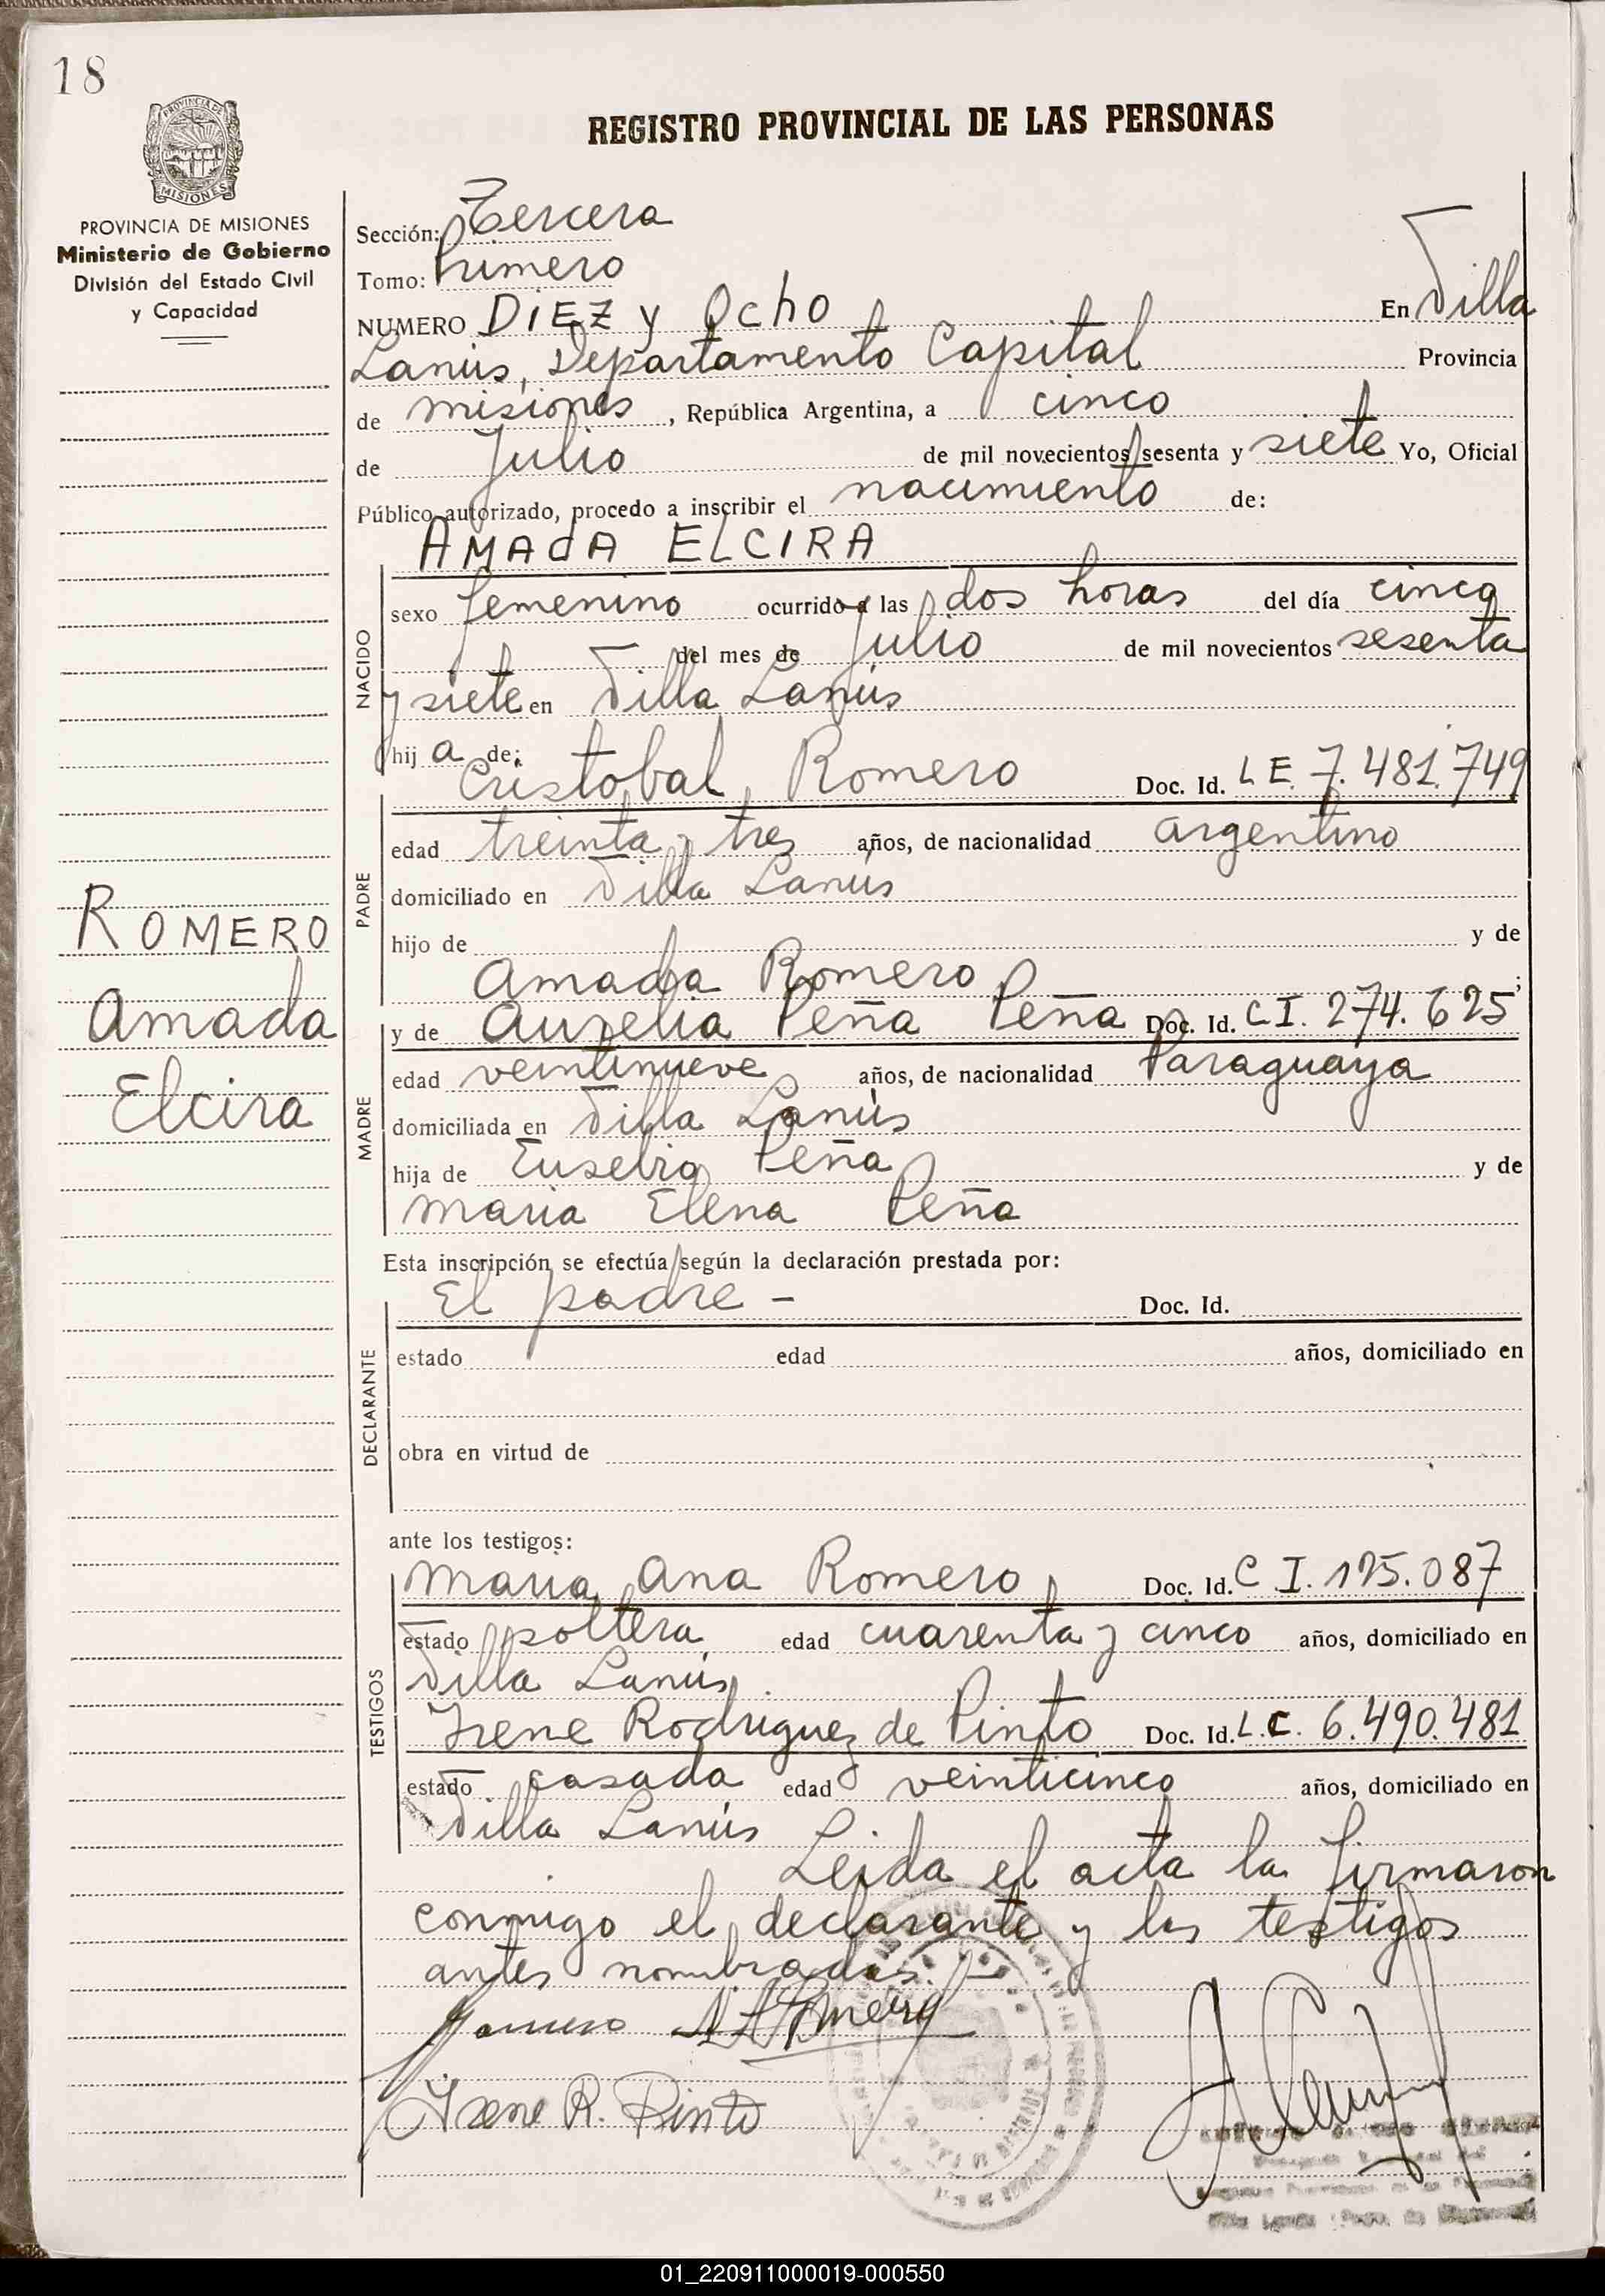 18
PROVINCIA DE
MISIONES
PROVINCIA DE MISIONES
Ministerio de Gobierno
División del Estado Civil
y Capacidad
ROMERO
Amada
Elcira
REGISTRO PROVINCIAL DE LAS PERSONAS
Sección: Tercera
Tomo: Primero
NUMERO DiEZ y Ocho En Villa
Lanús, Departamento Capital Provincia
de misiones, República Argentina, a cinco
de Julio de mil novecientos sesenta y siete Yo, Oficial
Público autorizado, procedo a inscribir el nacimiento de:
AMAdA ELCIRA
NACIDO
sexo femenino ocurrido a las dos horas del día cinco
del mes de Julio de mil novecientos sesenta
y siete en Villa Lanús
hij a de:
Cristobal Romero Doc. Id. LE. 7.481.749
PADRE
edad treinta y tres años, de nacionalidad argentino
domiciliado en Villa Lanús
hijo de y de
Amada Romero ;
y de Aurelia Peña Peña Doc. Id. C I. 274.625
MADRE
edad veintinueve años, de nacionalidad Paraguaya
domiciliada en Villa Lanús
hija de Eusebio Peña y de
Maria Elena Peña
Esta inscripción se efectúa según la declaración prestada por:
El padre - Doc. Id.
DECLARANTE
estado edad años, domiciliado en
obra en virtud de
ante los testigos:
TESTIGOS
Maria Ana Romero Doc. Id. C I. 125.087
estado soltera edad cuarenta y cinco años, domiciliado en
Villa Lanús.
Irene Rodriguez de Pinto Doc. Id. L.C. 6.490.481
estado casada edad veinticinco años, domiciliado en
Villa Lanús
Leida el acta la firmaron
conmigo el declarante y los testigos
antes nombrados.
Irene R. Pinto
01_220911000019-000550